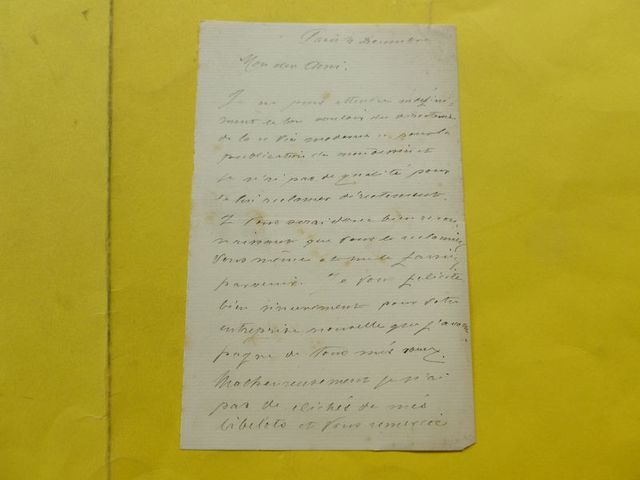 Paris 4 Décembre
Mon cher Ami,
Je ne puis attendre indéfini-
ment le bon vouloir du directeur
de la "Vie moderne" pour la
publication de mon dessin et
je n'ai pas de qualité pour
le lui réclamer directement.
Je vous serai donc bien recon-
naissant que vous le réclamiez
vous même et me le fassiez
parvenir. Je vous félicite
bien sincèrement pour votre
entreprise nouvelle que j'accom-
pagne de tous mes voeux.
Malheureusement je n'ai
pas de clichés de mes
bibelots et vous remercie